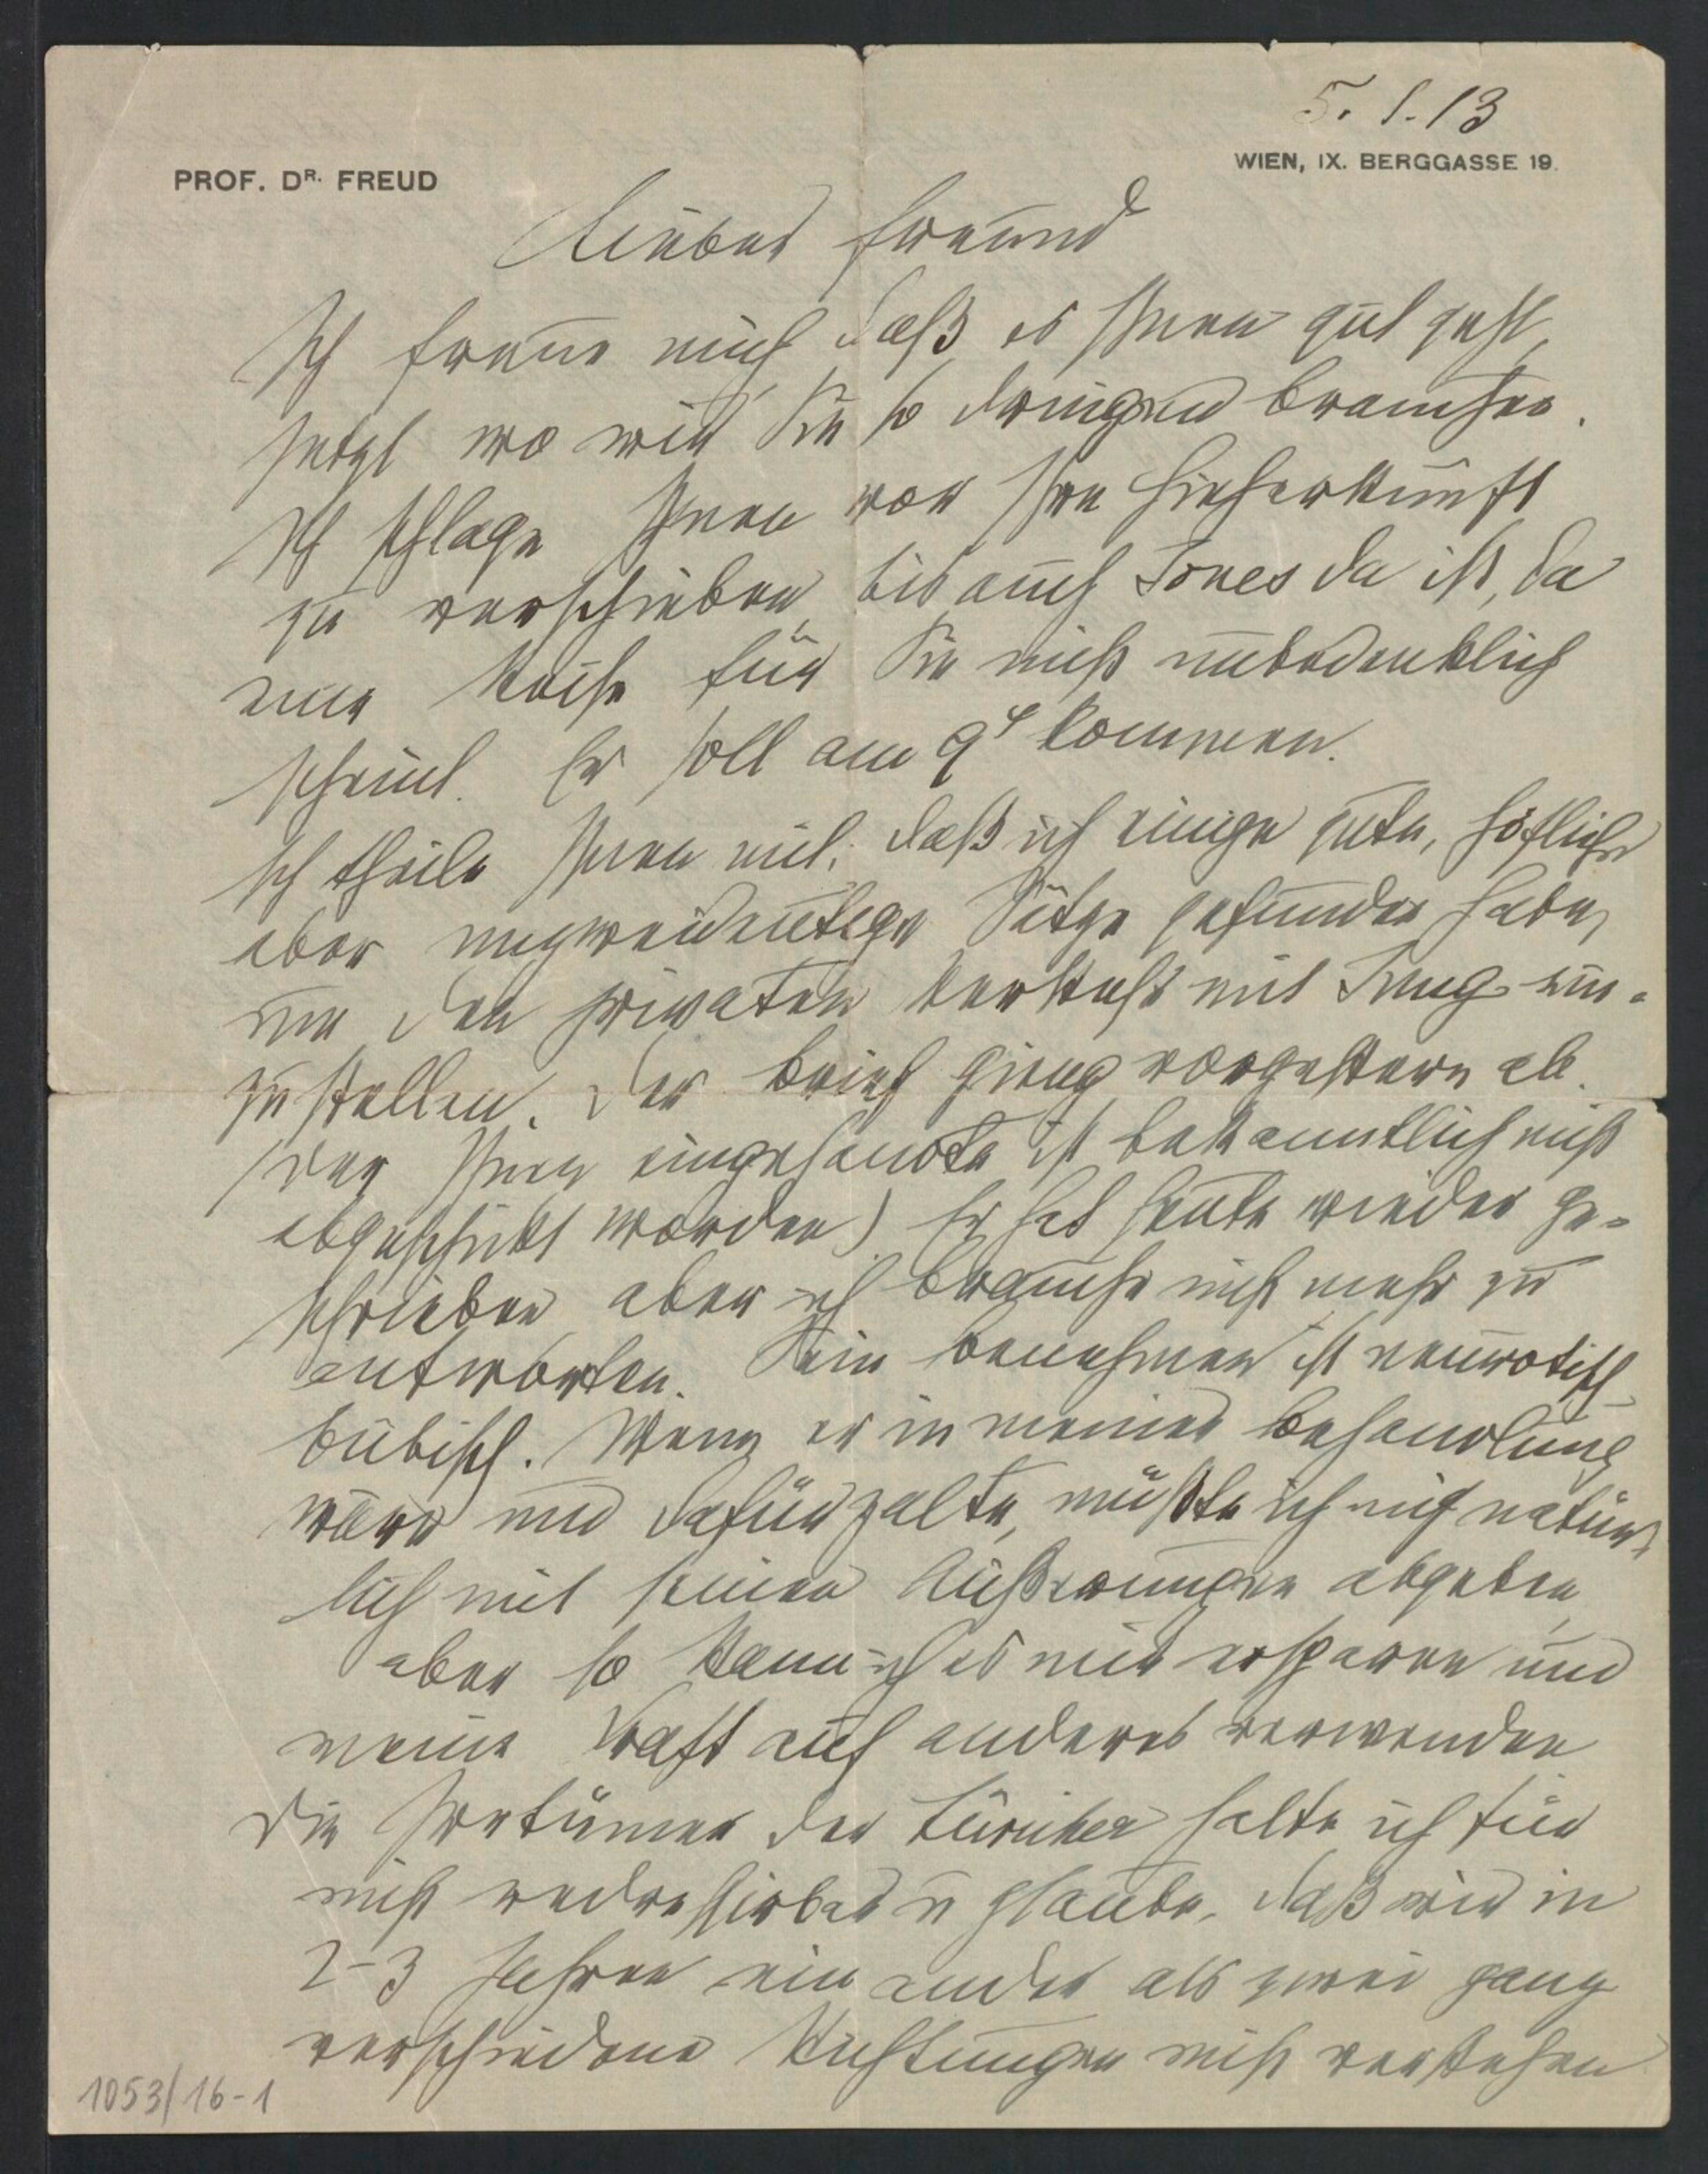 5. 1. 13
PROF. DR. FREUD
WIEN, IX. BERGGASSE 19.
Lieber Freund
Ich freue mich, daß es Ihnen gut geht,
jetzt wo wir Sie so dringend brauchen.
Ich schlage Ihnen vor Ihre Hieherkunft
zu verschieben, bis auch Jones da ist, da
eine für Sie nicht unbedenklich
scheint. Er soll am 9t kommen.
Ich theile Ihnen mit, daß ich einige gute, höfliche
aber unzweideutige Sätze gefunden habe,
um den privaten Verkehr mit Jung ein-
zustellen. Der Brief gieng vorgestern ab.
(Der Ihnen eingesandte ist bekanntlich nicht
abgeschickt worden) Er hat heute wieder ge-
schrieben, aber ich brauche nicht mehr zu
antworten. Sein Benehmen ist neurotisch
bübisch. Wenn er in meiner Behandlung
wäre und dafür zalte, müßte ich mich natür-
lich mit seinen Äußerungen abgeben,
aber so kann ich es mir ersparen und
meine Kraft auf anderes verwenden
Die Irrtümer der Züricher halte ich für
nicht redressirbar u glaube, daß wir in
2-3 Jahren einander als zwei ganz
verschiedene Richtungen nicht verstehen
1053/16-1